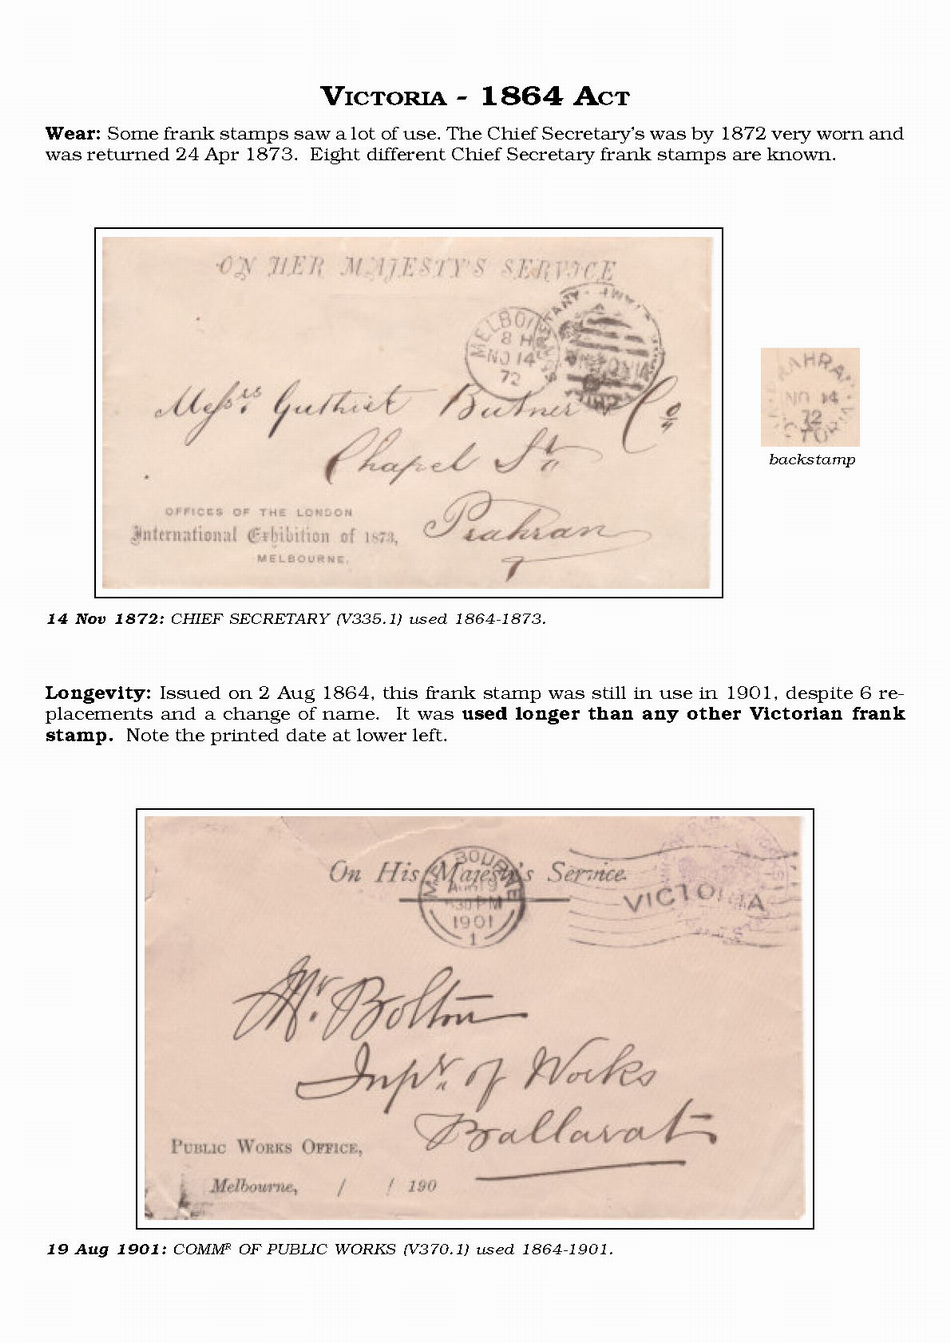 VICTORIA - 1864 ACT
Wear: Some frank stamps saw a lot of use. The Chief Secretary's was by 1872 very worn and
was returned 24 Apr 1873. Eight different Chief Secretary frank stamps are known.
ON HER MAJESTY'S SERVICE
MELBOU
8 H
NO 14
72
Messrs Guthrie Butner & Co
Chapel St
Prahran
OFFICES OF THE LONDON
International Exhibition of 1873,
MELBOURNE.
RAHRA
NO 14
72
VICTORIA
backstamp
14 Nov 1872: CHIEF SECRETARY (V335.1) used 1864-1873.
Longevity: Issued on 2 Aug 1864, this frank stamp was still in use in 1901, despite 6 re-
placements and a change of name. It was used longer than any other Victorian frank
stamp. Note the printed date at lower left.
On His Majesty's Service.
MELBOURNE
AUG 19
530 PM
1901
1
VICTORIA
Mr. Bolton
Inpr. of Works
Ballarat
PUBLIC WORKS OFFICE,
Melbourne, / / 190
19 Aug 1901: COMMR OF PUBLIC WORKS (V370.1) used 1864-1901.